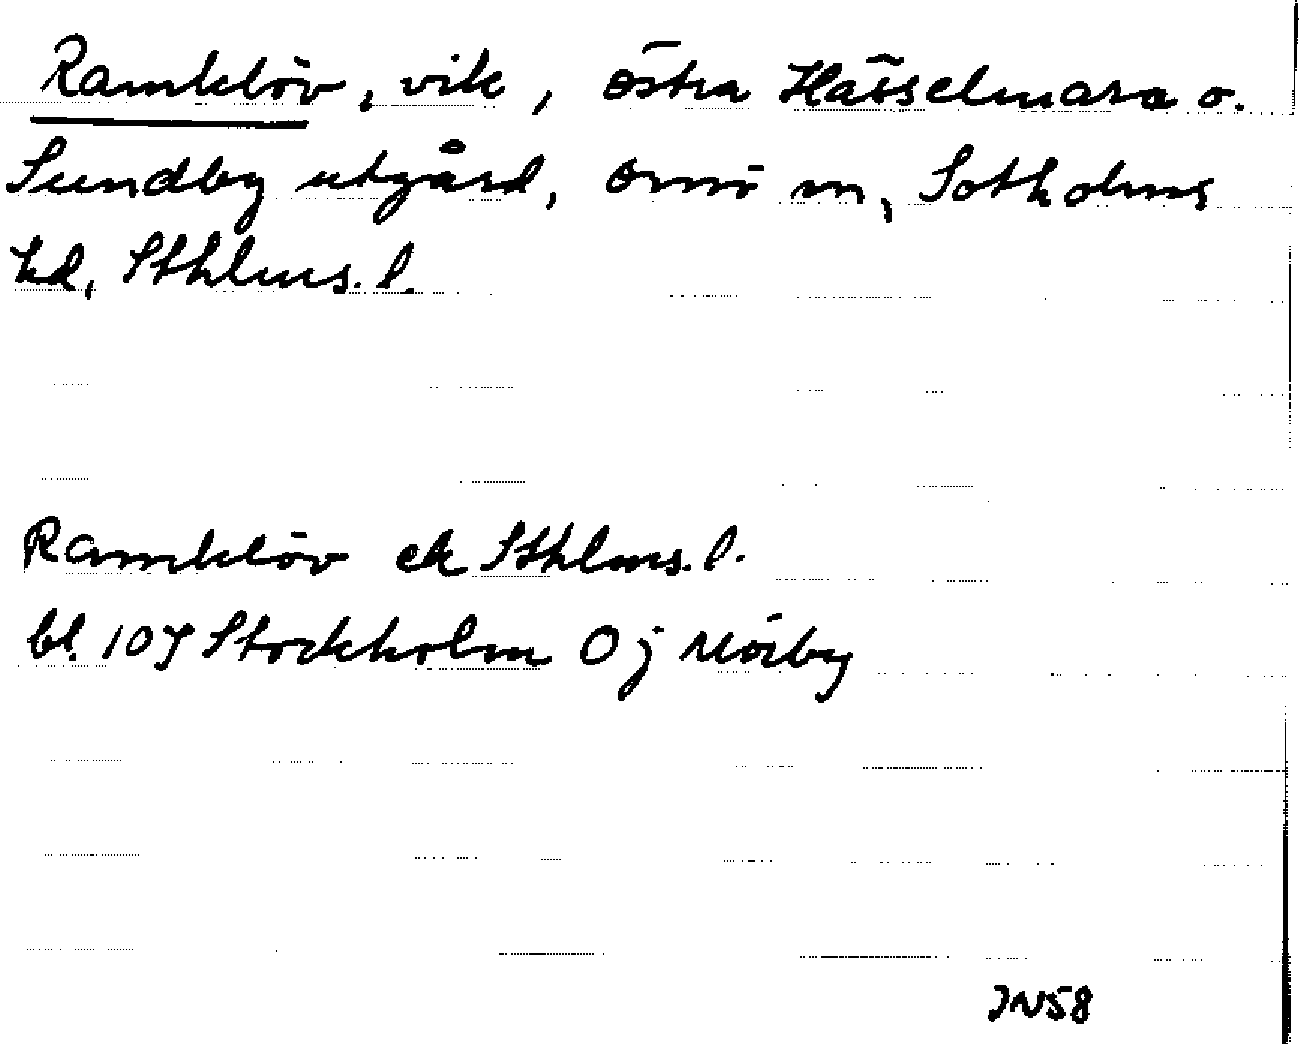 Ramklöv, vik, östra Hässelmara o.
Sundby utgård, Ornö sn, Sotholms
hd, Sthlms. l.
Ramklöv ek Sthlms. l.
bl. 107 Stockholm O j Mörby
JN58